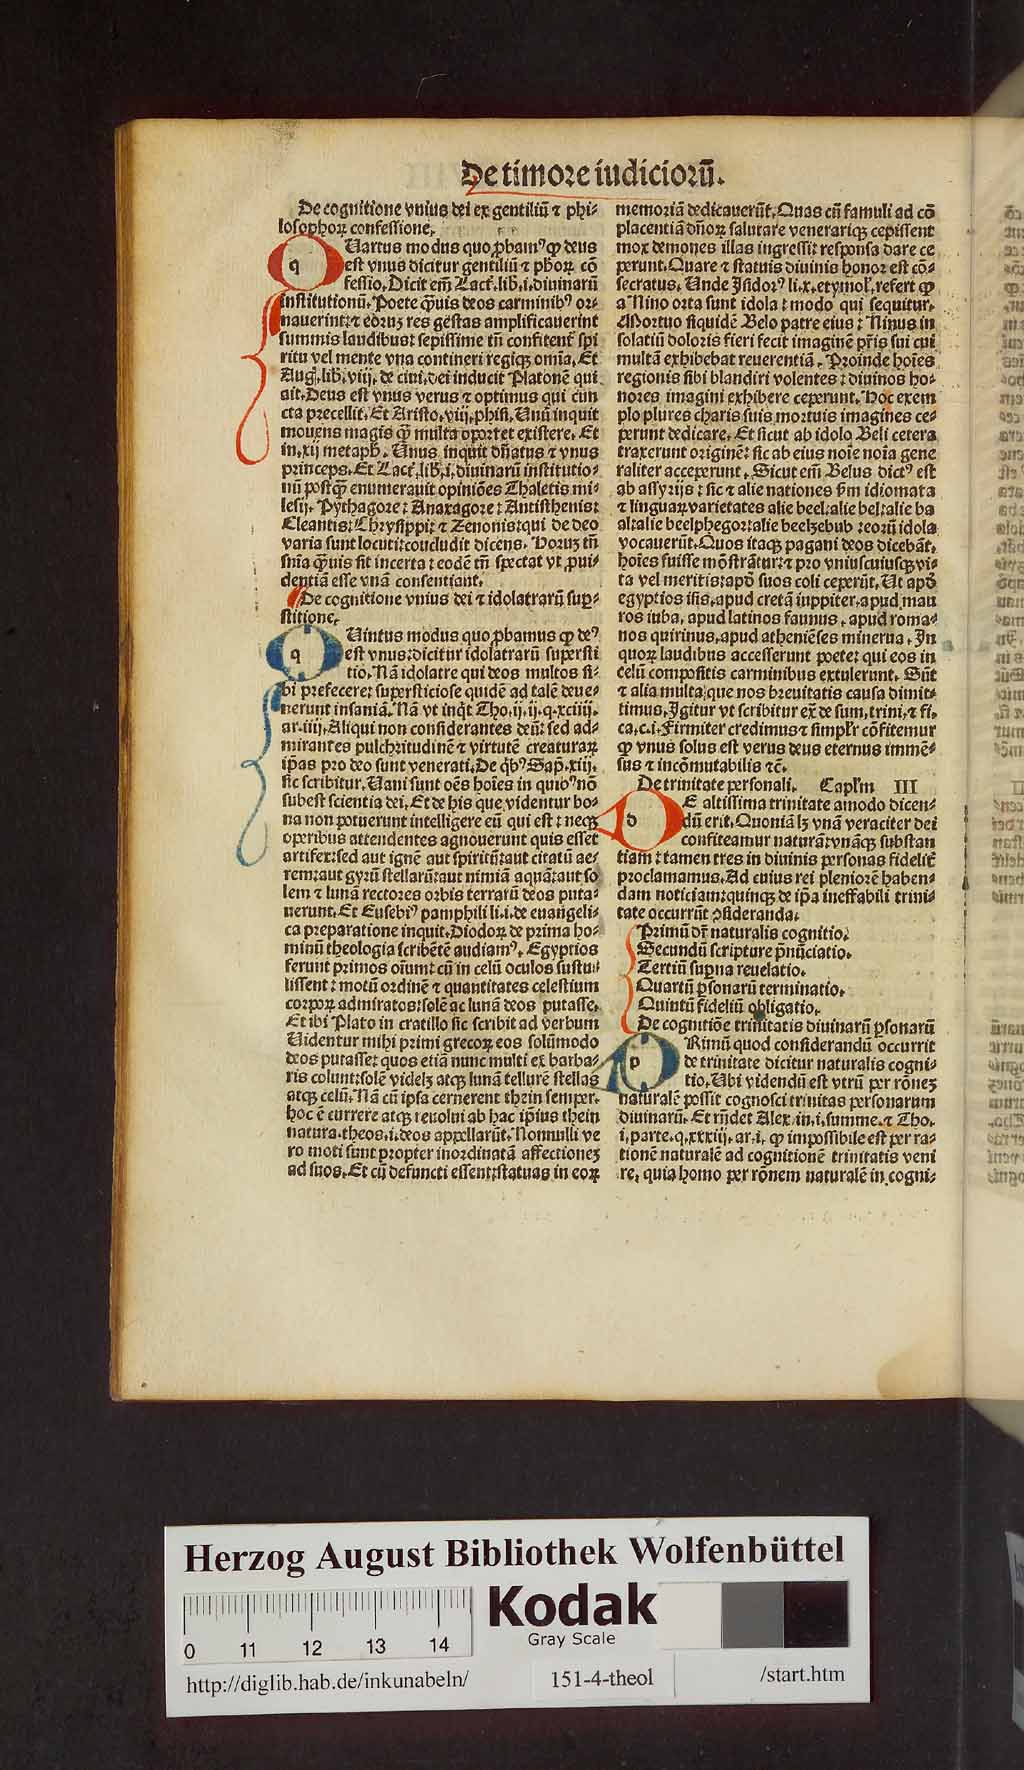 De timore iudiciorū.
De cognitione vnius dei ex gentiliū ⁊ phi-
losophoꝝ confessione.
QUartus modus quo ꝓbamꝰ ꝙ deus
est vnus dicitur gentiliū ⁊ phoꝝ cō
fessio. Dicit em̄ Lact̄. lib. i. diuinarū
institutionū. Poete q̄uis deos carminibꝰ or-
nauerint: ⁊ eoruʒ res gestas amplificauerint
summis laudibus: sepissime tn̄ confitent̄ spi
ritu vel mente vna contineri regiqʒ om̄ia. Et
Aug. lib. viij. de ciui. dei inducit Platonē qui
ait. Deus est vnus verus ⁊ optimus qui cun
cta precellit. Et Aristo. viij. phisi. Unū inquit
mouens magis q̄ȝ multa oportet existere. Et
in. xij metaph. Unus inquit dn̄atus ⁊ vnus
princeps. Et Lact̄. lib. i. diuinarū institutio-
nū postq̄ȝ enumerauit opiniões Thaletis mi-
lesij. Pythagore: Anaxagore: Antisthenis:
Cleantis: Chrysippi: ⁊ Zenonis: qui de deo
varia sunt locuti: concludit dicens. Horuʒ tn̄
sn̄ia q̄uis sit incerta: eodē tn̄ spectat vt ꝓui-
dentiā esse vnā consentiant.
De cognitione vnius dei ⁊ idolatrarū suꝑ-
stitione.
QUintus modus quo ꝓbamus ꝙ deꝰ
est vnus: dicitur idolatrarū supersti
tio. Nā idolatre qui deos multos si-
bi prefecere: supersticiose quidē ad talē deue-
nerunt insaniā. Nā vt inq̄t Tho. ij. ij. q. xciiij.
ar. iiij. Aliqui non considerantes deū: sed ad-
mirantes pulchritudinē ⁊ virtutē creaturaꝝ
ip̄as pro deo sunt venerati. De q̄bꝰ Sap̄. xiij.
sic scribitur. Uani sunt oēs hoīes in quibꝰ nō
subest scientia dei. Et de his que videntur bo-
na non potuerunt intelligere eū qui est: necqʒ
operibus attendentes agnouerunt quis esset
artifex: sed aut ignē aut spiritū: aut citatū ae-
rem: aut gyrū stellarū: aut nimiā aquā: aut so
lem ⁊ lunā rectores orbis terrarū deos puta-
uerunt. Et Eusebiꝰ pamphili li. i. de euāgeli-
ca preparatione inquit. Diodoꝝ de prima ho-
minū theologia scribētē audiamꝰ. Egyptios
ferunt primos oīum: cū in celū oculos sustu-
lissent: motū ordinē ⁊ quantitates celestium
corpoꝝ admiratos: solē ac lunā deos putasse.
Et ibi Plato in cratillo sic scribit ad verbum
Uidentur mihi primi grecoꝝ eos solūmodo
deos putasse: quos etiā nunc multi ex barba-
ris colunt: solē videlʒ atqʒ lunā tellurē stellas
atqʒ celū. Nā cū ipsa cernerent thein semper.
hoc ē currere atqʒ reuolui ab hac ip̄ius thein
natura. theos. i. deos appellarūt. Nonnulli ve
ro moti sunt propter inordinatā affectioneʒ
ad suos. Et cū defuncti essent: statuas in eoꝝ
memoriā dedicauerūt. Quas cū famuli ad cō
placentiā dn̄oꝝ salutare venerariqʒ cepissent
mox demones illas ingressi: responsa dare ce
perunt. Quare ⁊ statuis diuinis honor est cō-
secratus. Unde Jsidorꝰ li. x. etymol̄. refert ꝙ
a Nino orta sunt idola: modo qui sequitur.
Mortuo siquidē Belo patre eius: Ninus in
solatiū doloris fieri fecit imaginē pr̄is sui cui
multā exhibebat reuerentiā. Proinde hoīes
regionis sibi blandiri volentes: diuinos ho-
nores imagini exhibere ceperunt. Hoc exem
plo plures charis suis mortuis imagines ce-
perunt dedicare. Et sicut ab idolo Beli cetera
traxerunt originē: sic ab eius noīe noīa gene
raliter acceperunt. Sicut em̄ Belus dictꝰ est
ab assyrijs: sic ⁊ alie nationes ẜm idiomata
⁊ linguaꝝ varietates alie beel: alie bel: alie ba
al: alie beelphegor: alie beelzebub: eorū idola
vocauerūt. Quos itaqʒ pagani deos dicebāt.
hoīes fuisse mōstrātur: ⁊ pro vniuscuiusqʒ vi-
ta vel meritis: apd̄ suos coli ceperūt. Ut apd̄
egyptios isis. apud cretā iuppiter. apud mau
ros iuba. apud latinos faunus. apud roma-
nos quirinus. apud atheniēses minerua. Jn
quoꝝ laudibus accesserunt poete: qui eos in
celū compositis carminibus extulerunt. Sūt
⁊ alia multa: que nos breuitatis causa dimit-
timus. Jgitur vt scribitur ex̄ de sum. trini. ⁊ fi.
ca. c. i. Firmiter credimus ⁊ simplr̄ cōfitemur
ꝙ vnus solus est verus deus eternus immē-
sus ⁊ incōmutabilis ⁊c̄.
De trinitate personali. Capl̄m III
DE altissima trinitate amodo dicen-
dū erit. Quoniā lʒ vnā veraciter dei
confiteamur naturā: vnāqʒ substan
tiam: tamen tres in diuinis personas fidelit̄
proclamamus. Ad cuius rei pleniorē haben-
dam noticiam: quinqʒ de ip̄a ineffabili trini-
tate occurrūt ꝯsideranda.
Primū dr̄ naturalis cognitio.
Secundū scripture p̄nūciatio.
Tertiū suꝑna reuelatio.
Quartū ꝑsonarū terminatio.
Quintū fideliū obligatio.
De cognitiōe trinitatis diuinarū ꝑsonarū
PRimū quod considerandū occurrit
de trinitate dicitur naturalis cogni-
tio. Ubi videndū est vtrū per rōneʒ
naturalē possit cognosci trinitas personarum
diuinarū. Et rn̄det Alex. in. i. summe. ⁊ Tho.
i. parte. q. xxxiij. ar. i. ꝙ impossibile est per ra-
tionē naturalē ad cognitionē trinitatis veni
re. quia homo per rōnem naturalē in cogni-
Herzog August Bibliothek Wolfenbüttel
Kodak
Gray Scale
0 11 12 13 14
http://diglib.hab.de/inkunabeln/ 151-4-theol /start.htm